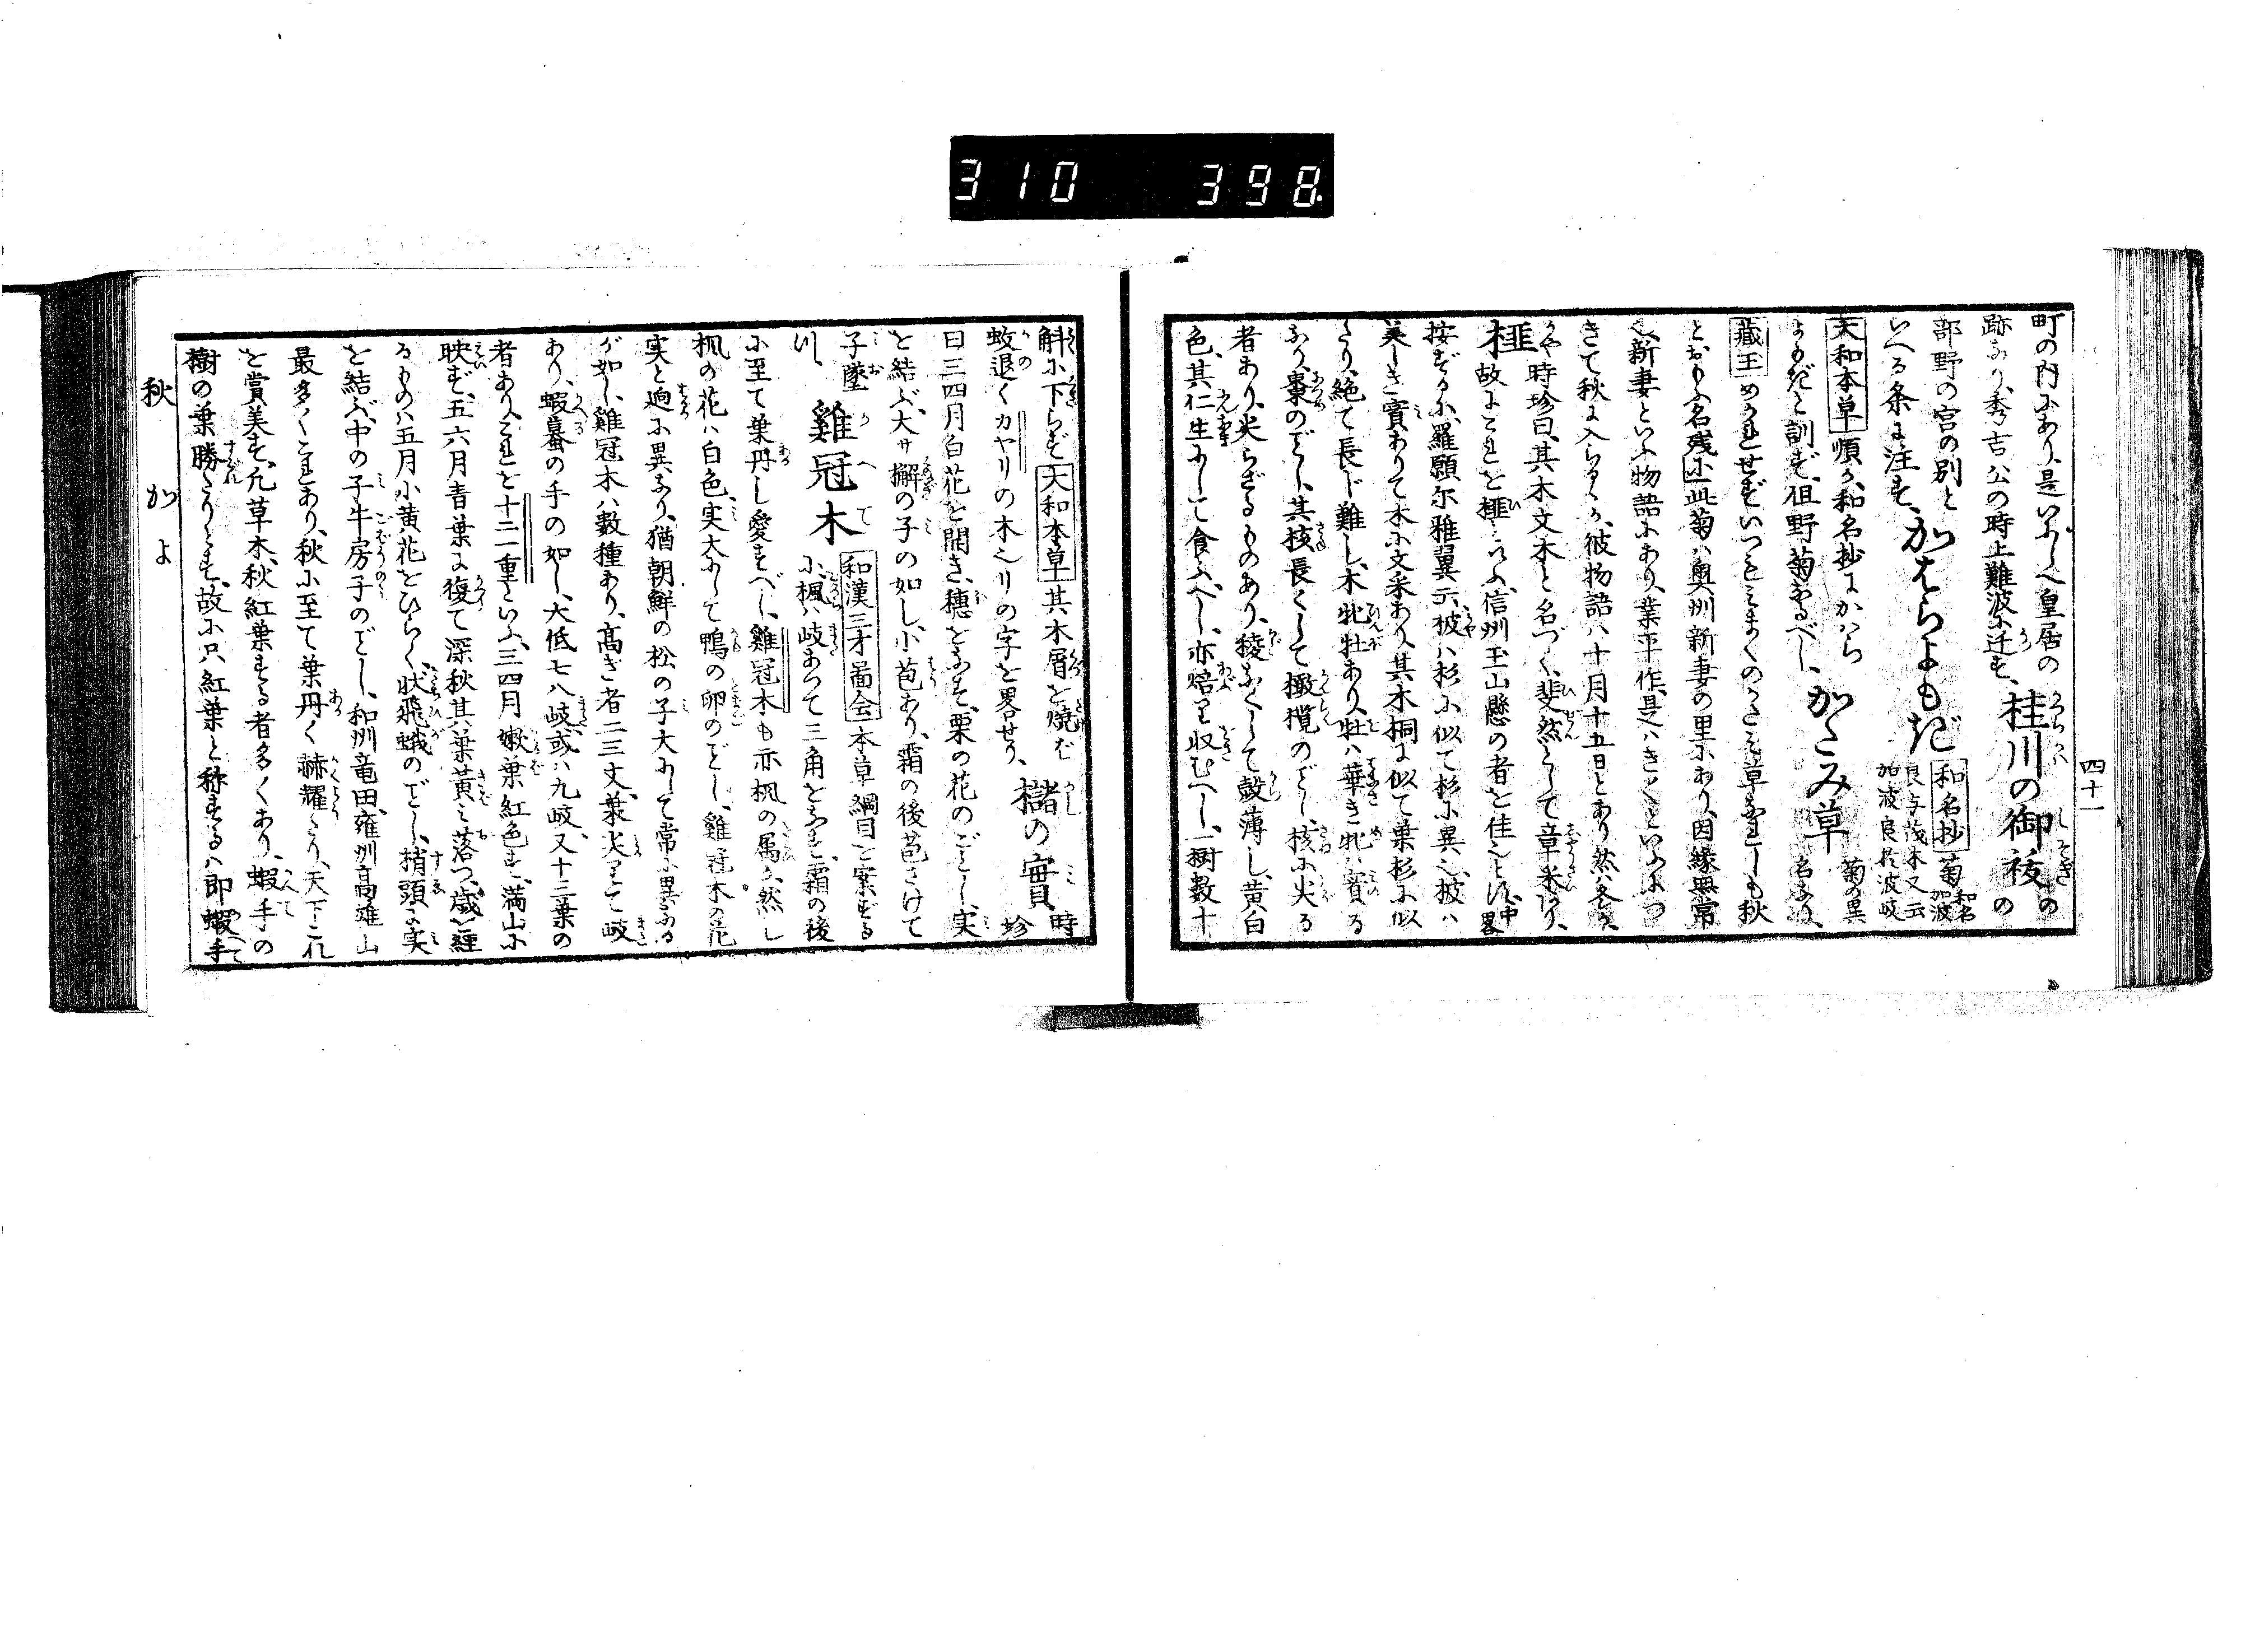 310 398.
四十一
町の内にあり、是いにしへ皇居の
跡なり、秀吉公の時上難波に迁す、
桂川の御祓
の
部野の宮の別と
いへる条に注す、
かはらよもぎ
和名抄
菊
和名
加波
良与茂木又云
加波良於波岐
大和本草
順が和名抄にかはら
よもぎと訓ず、但野菊なるべし、
かたみ草
菊の異
名なり、
藏玉
とおもふ名残に此菊は奥州新妻の里にあり、因縁無常
也、新妻といふ物語にあり、業平作、是はきくといふにつ
きて秋に入らるゝか、彼物語は十月十五日とあり然は冬か、
榧
時珍曰、其木文木と名づく、斐然として章釆あり、
故にこれを榧といふ、信州玉山懸の者を佳也とす、中畧
按ずるに、羅願尓雅翼云、披は杉に似て杉に異也、披は
美しき實ありて木に文釆あり、其木桐に似て葉杉に似
たり、絶て長じ難し、木牝牡あり、牡は華さき牝は實る
なり、棗のごとし、其核長くして橄欖のごとし、核に尖る
者あり、尖らざるものあり、稜なくして殻薄し、黄白
色、其仁生にして食ふべし、亦焙て収むべし、一樹数十
斛に下らず
大和本草
其木屑を焼ば
蚊退く カヤリの木也リの字を畧せり、
櫧の實
時
珍
曰三四月白花を開き、穗をなす、栗の花のごとし、実
を結ぶ、大サ槲の子の如し、小苞あり、霜の後苞さけて
子墜つ
雞冠木
和漢三才圖会
本草綱目を案ずる
に、楓は岐あつて三角をなす、霜の後
に至て葉丹し愛すべし、雞冠木も亦楓の属か、然し
楓の花は白色、実大にして鴨の卵のごとし、雞冠木の花
実と逈に異なり、猶朝鮮の松の子大にして常に異なる
が如し、雞冠木は數種あり、高き者二三丈、葉尖りて岐
あり、蝦蟇の手の如し、大低七八岐、或は九岐、又十二葉の
者あり、これを十二一重といふ、三四月嫩葉紅色す、満山に
映ず、五六月青葉に復て深秋其葉黄ミ落つ、歳を經
るものは五月小黄花をひらく、状飛蛾のごとし、梢頭に実
を結ぶ、中の子牛房子のごとし、和州竜田、雍州高雄山
最多くこれあり、秋に至て葉丹く赫耀たり、天下これ
を賞美す、凡草木、秋紅葉する者多くあり、蝦手の
樹の葉勝たりとす、故に只紅葉と称するは即蝦手
秋
か
よ